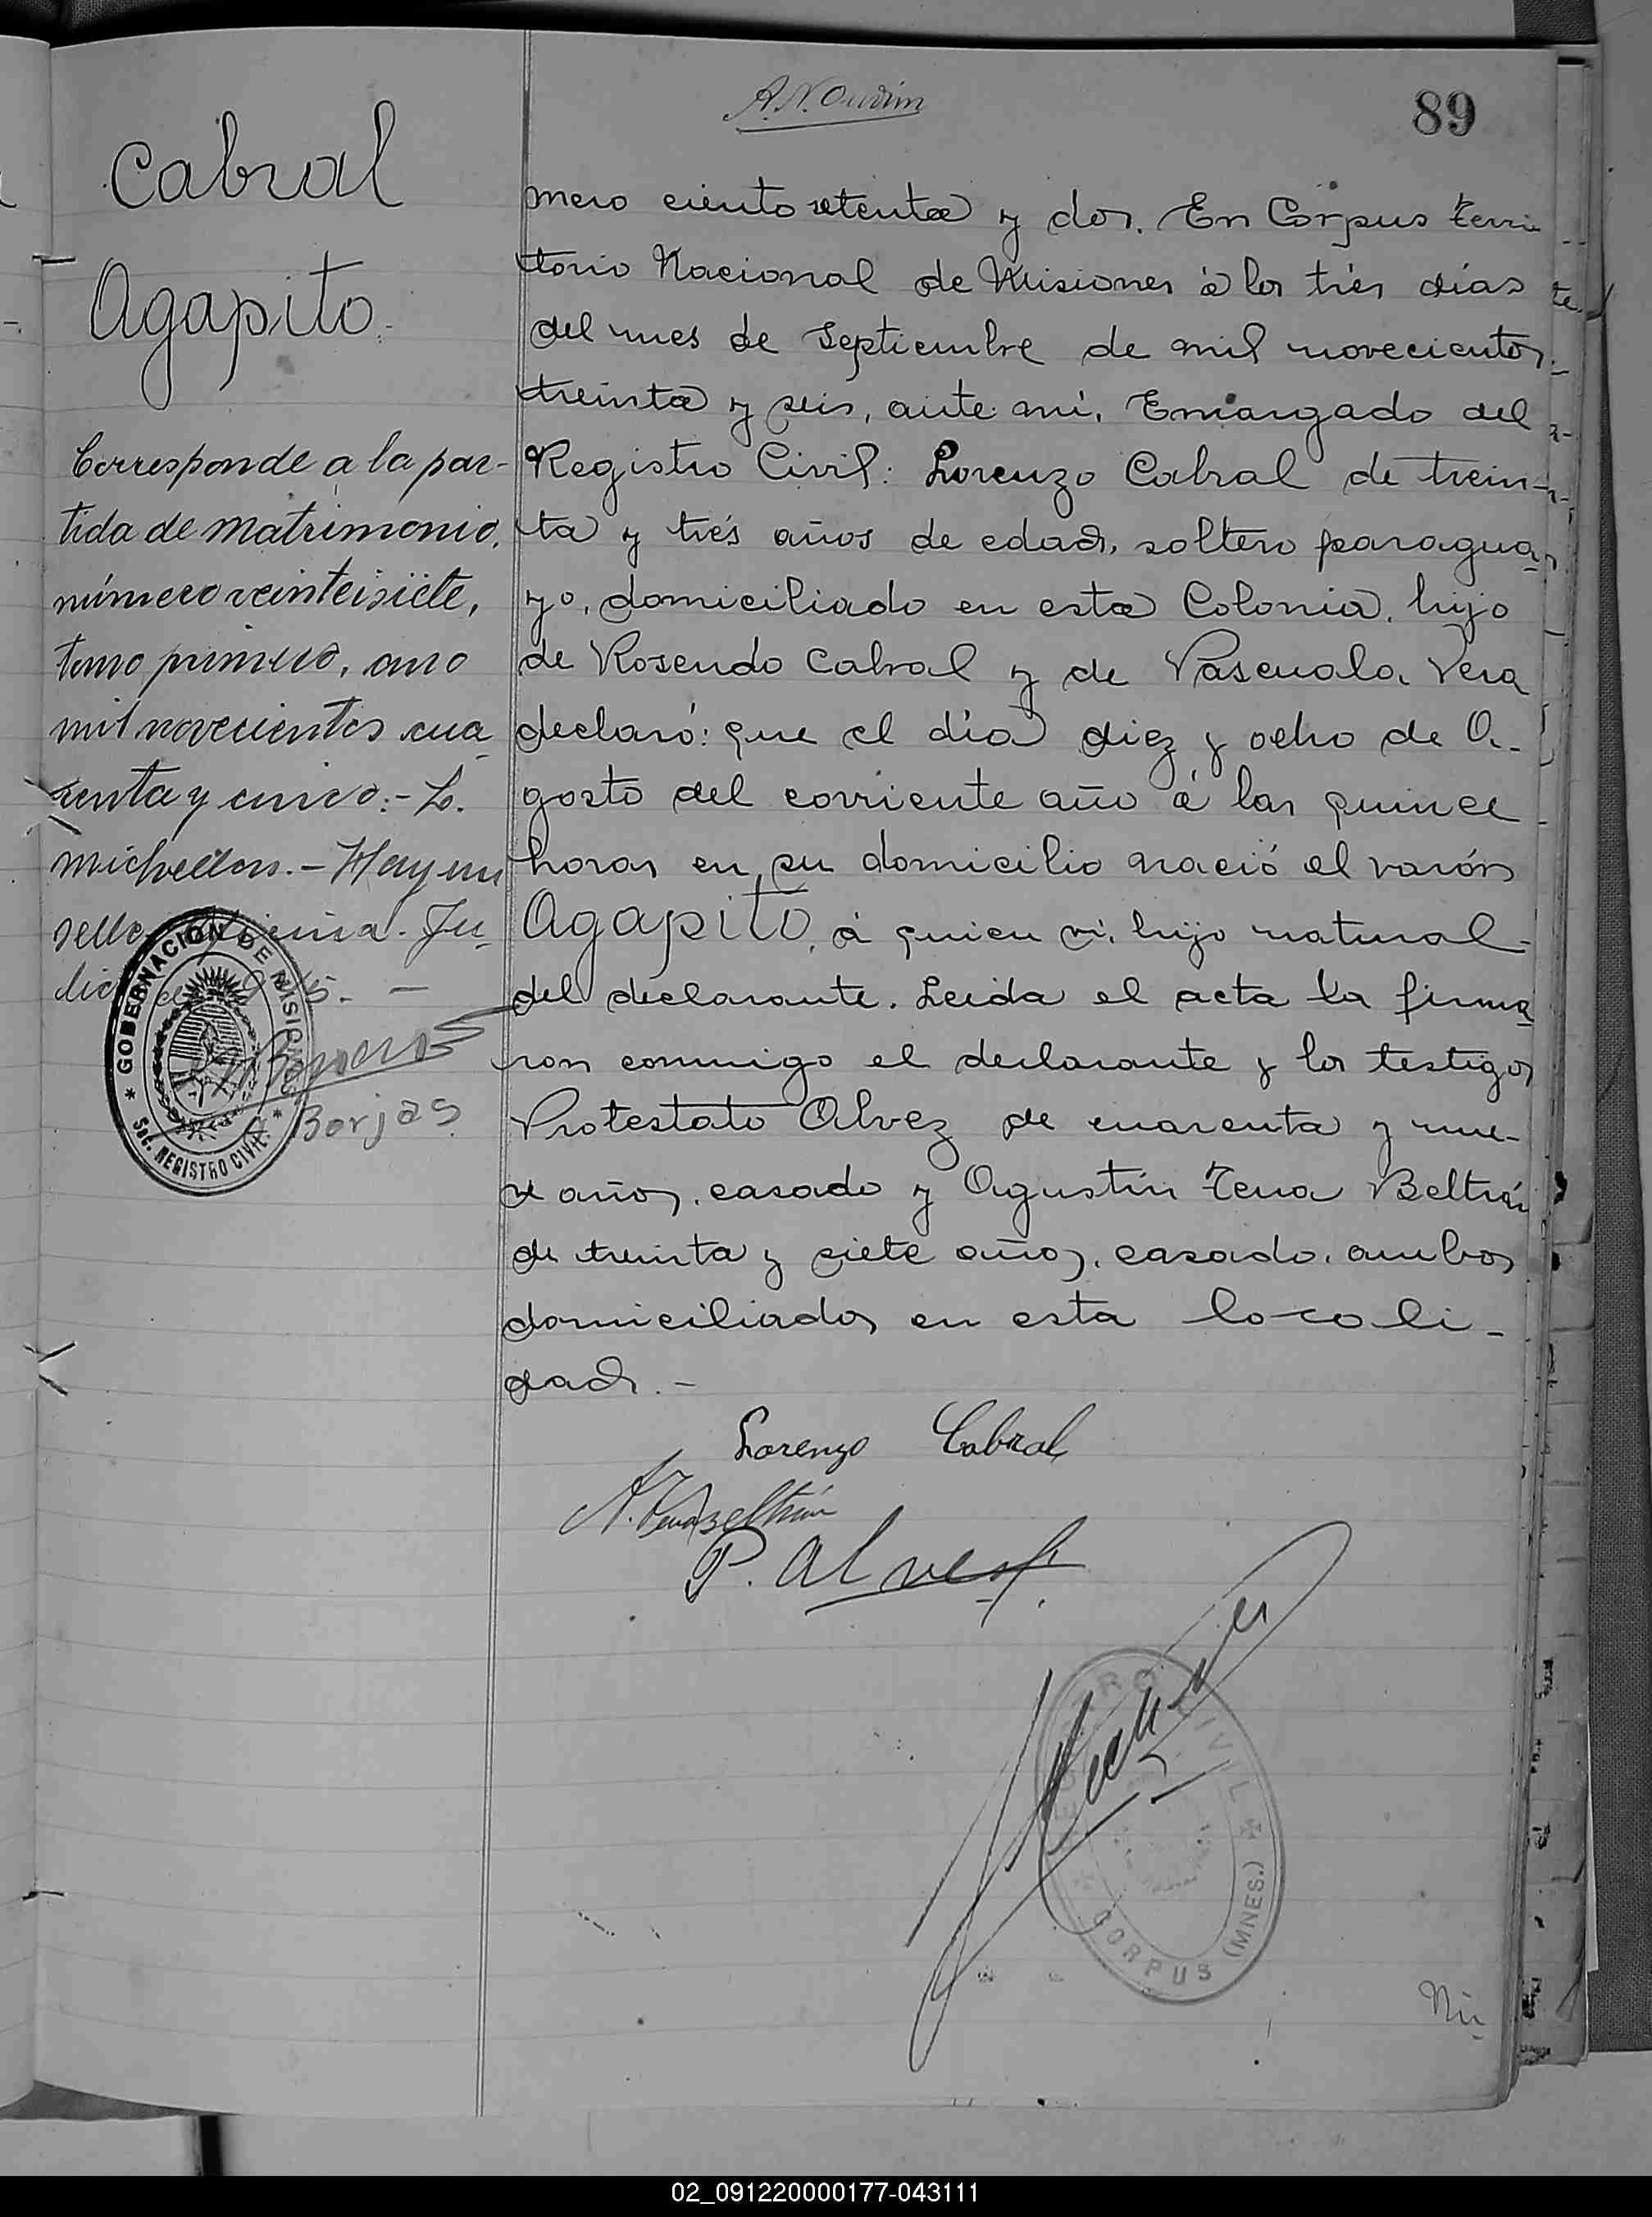 A. N.
89
Cabral
Agapito.
Corresponde a la par-
tida de matrimonio,
número veinteisiete,
tomo primero, año
mil novecientos cua
renta y cinco:- L.
Michellon. - Hay un
sello. Ju
lio
GOBERNACIÓN DE MISIONES
Sec. REGISTRO CIVIL
Borjas
mero ciento setenta y dos. En Corpus terri
torio Nacional de Misiones á los trés días
del mes de Septiembre de mil novecientos
treinta y seis, ante mí, Encargado del
Registro Civil: Lorenzo Cabral de trein-
ta y trés años de edad, soltero paragua
yo, domiciliado en esta Colonia, hijo
de Rosendo Cabral y de Pascuala Vera
declaró: que el día diez y ocho de A-
gosto del corriente año á las quince
horas en su domicilio nació el varón
Agapito, á quien ví, hijo natural
del declarante. Leida el acta la firma
ron conmigo el declarante y los testigos
Protestato Alvez de cuarenta y nue-
ve años, casado y Agustín Tena Beltrán
de treinta y siete años, casado, ambos
domiciliados en esta locali-
dad.-
Lorenzo Cabral
A. Tena Beltrán
P. Alvest.
REGISTRO CIVIL
CORPUS (MNES.)
Nú
02_091220000177-043111